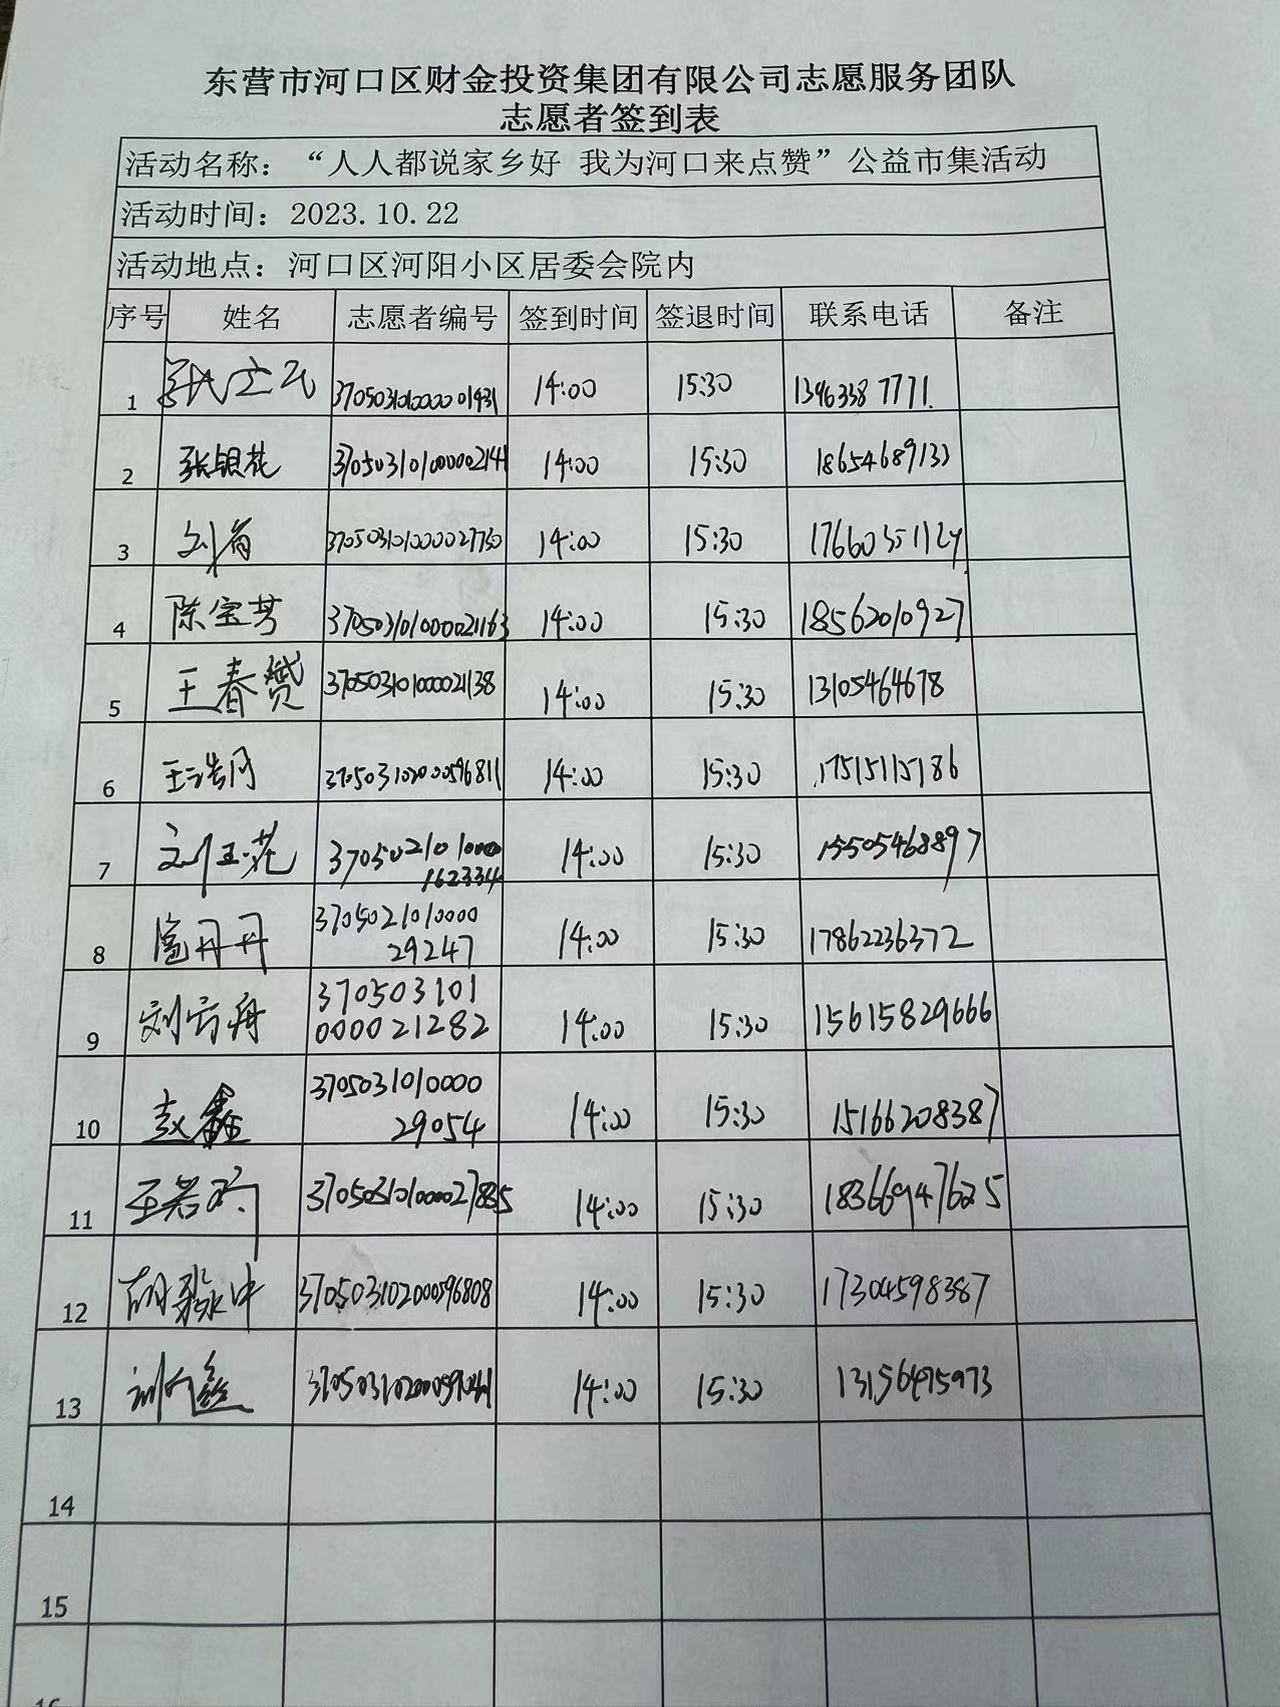 东营市河口区财金投资集团有限公司志愿服务团队
志愿者签到表
活动名称：“人人都说家乡好 我为河口来点赞”公益市集活动
活动时间：2023.10.22
活动地点：河口区河阳小区居委会院内
序号 姓名 志愿者编号 签到时间 签退时间 联系电话 备注
1 14:00 15:30 13963387771
2 张银花 370503101000002141 14:00 15:30 18654689133
3 14:00 15:30
4 陈宝芳 370503101000021163 14:00 15:30 18562010927
5 王春赟 37050310100021138 14:00 15:30 13105464678
6 王浩月 370503102000596811 14:00 15:30 17515115186
7 刘玉花 3705021010000 14:00 15:30 15505468897
162334
8 丹丹 3705021010000 14:00 15:30 17862236372
29247
9 刘方舟 370503101 14:00 15:30 15615829666
000021282
10 赵鑫 3705031010000 14:00 15:30 15166208387
29054
11 14:00 15:30 18366947625
12 370503102000596808 14:00 15:30 17304598387
13 14:00 15:30 13156475973
14
15
16